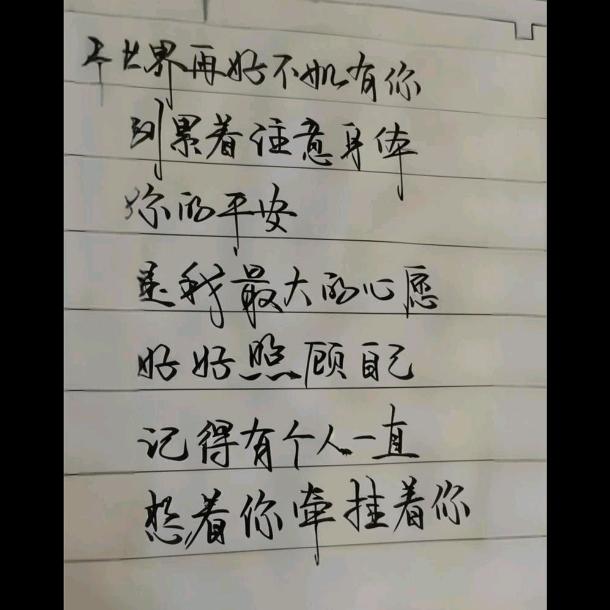 世界再好不如有你
别累着注意身体
你的平安
是我最大的心愿
好好照顾自己
记得有个人一直
想着你牵挂着你